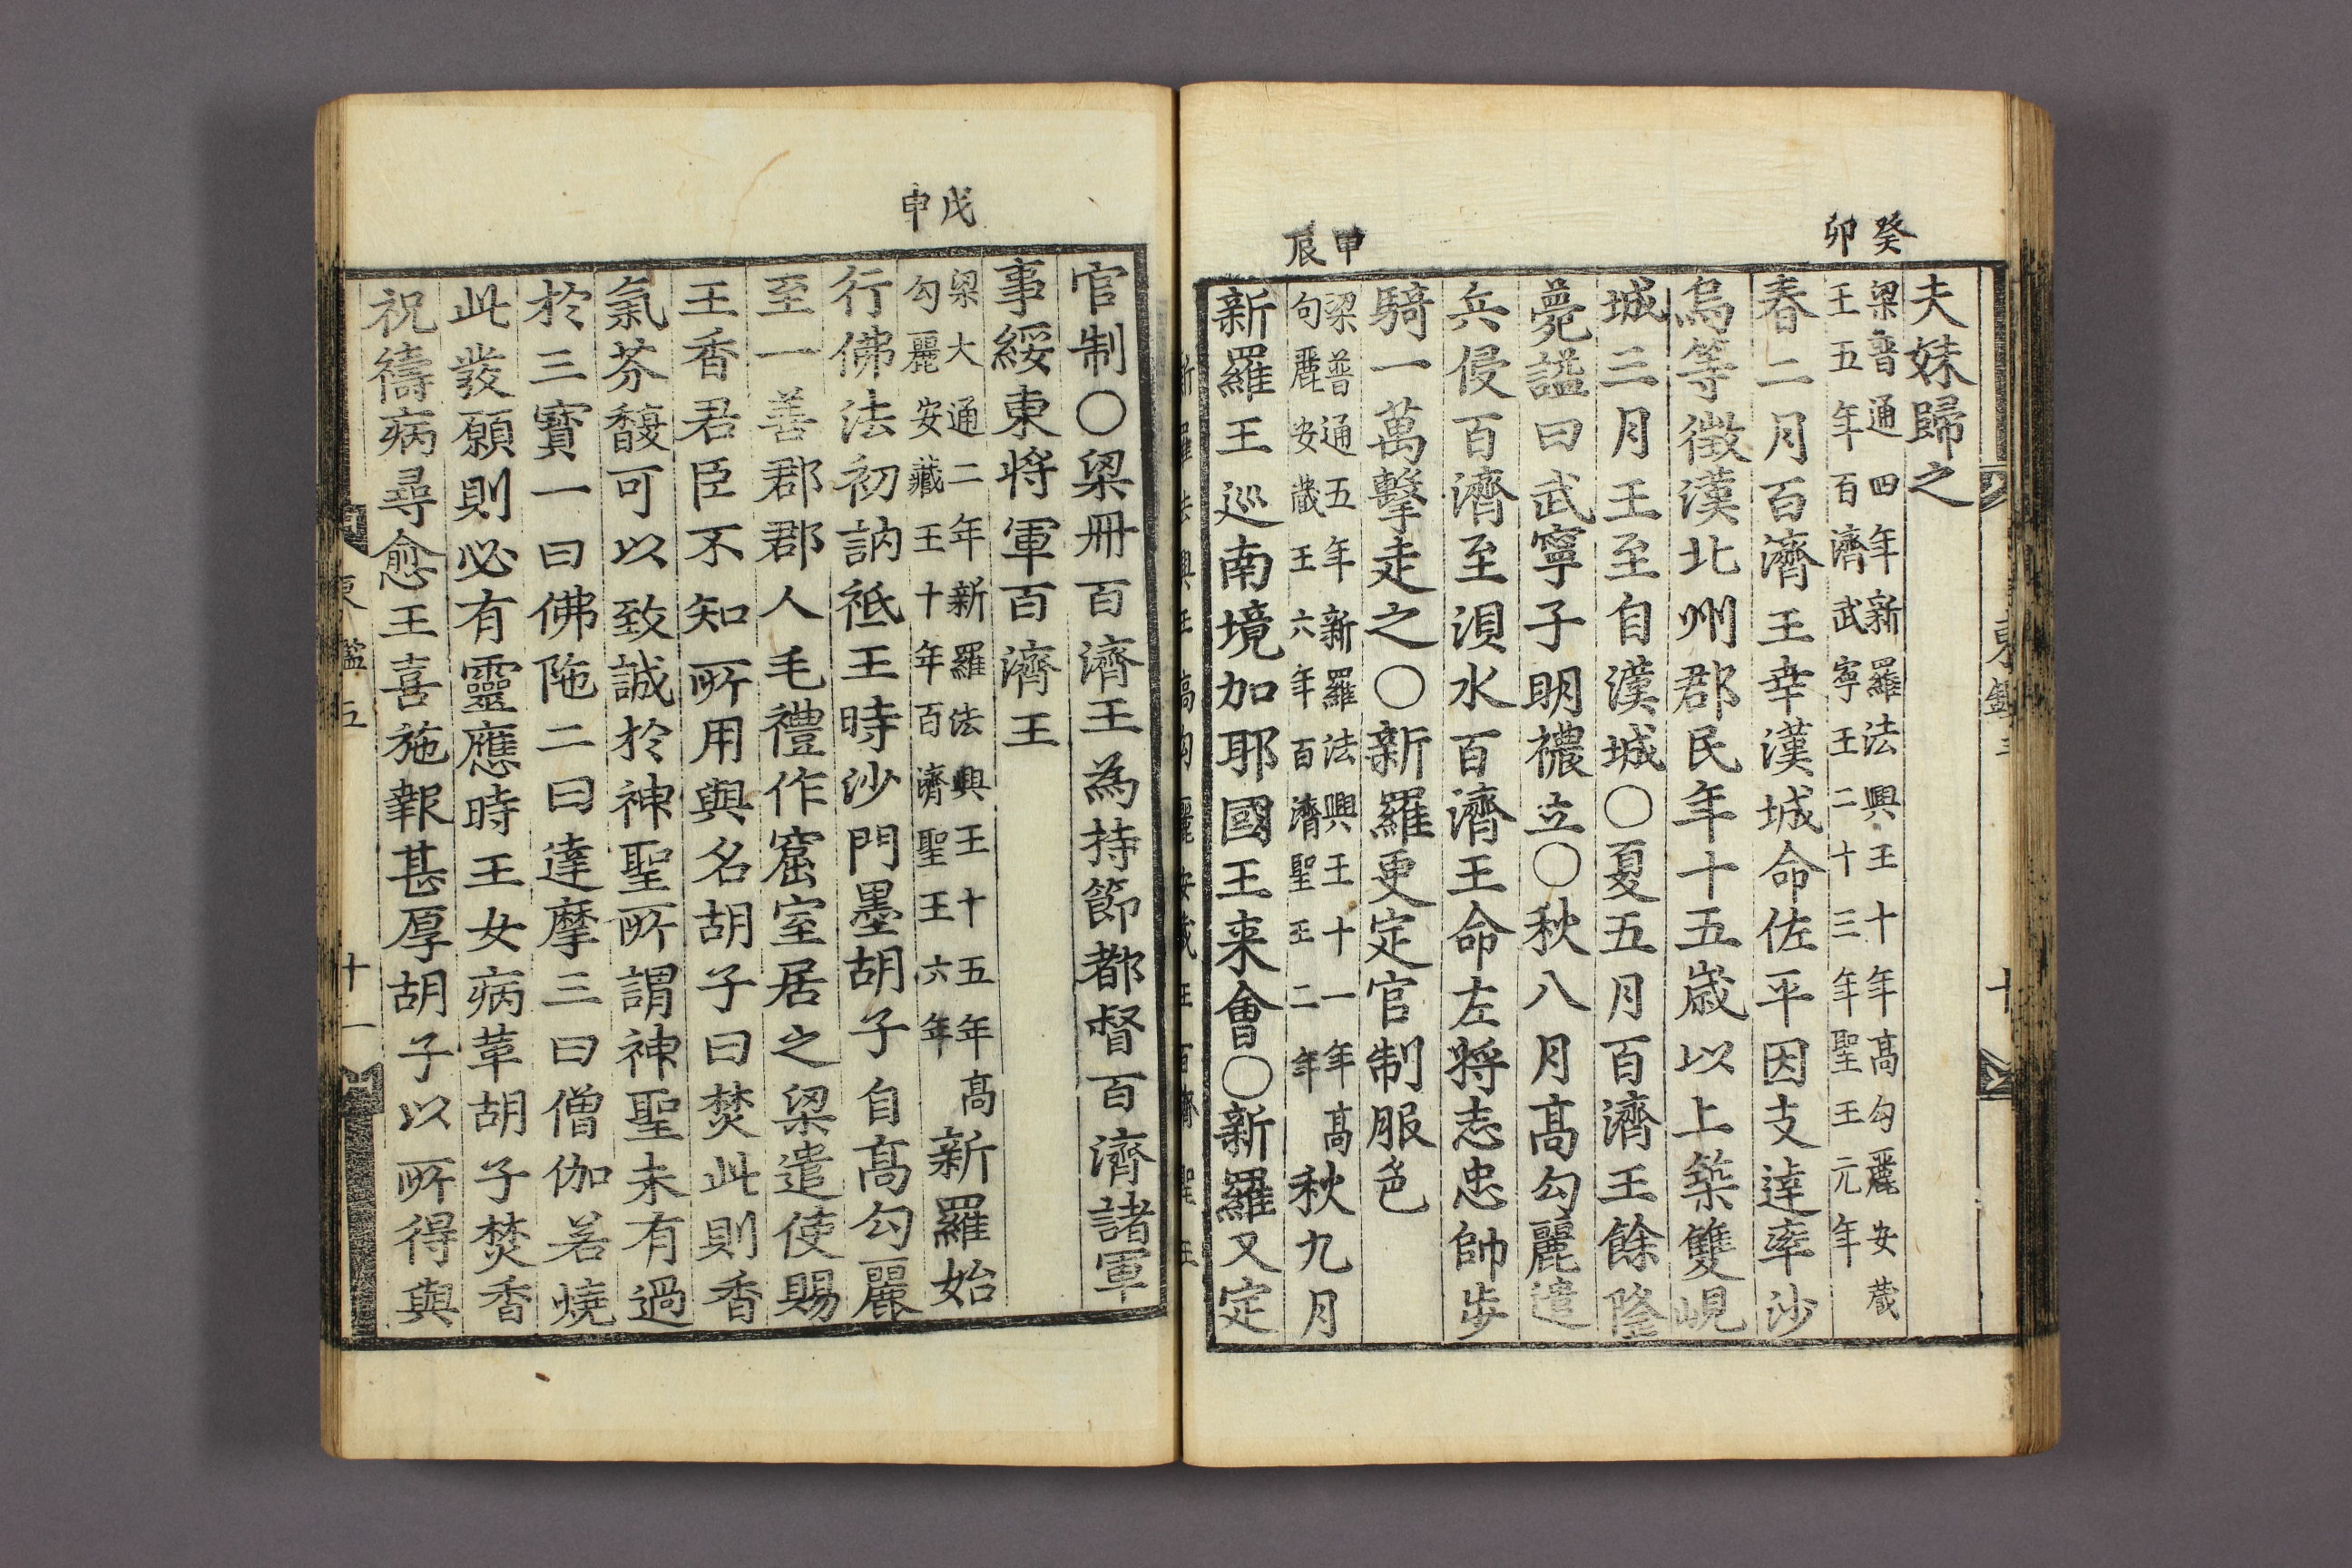 癸卯
夫妹歸之
梁普通四年新羅法興王十年高勾麗安蔵
王五年百濟武寧王二十三年聖王元年
春二月百濟王幸漢城命佐平因支達率沙
烏等徵漢北州郡民年十五歲以上築雙峴
城三月王至自漢城〇夏五月百濟王餘隆
薨諡曰武寧子明襛立〇秋八月高勾麗遣
兵侵百濟至浿水百濟王命左將志忠帥步
騎一萬擊走之〇新羅更定官制服色
甲辰
梁普通五年新羅法興王十一年高
句麗安蔵王六年百濟聖王二年
秋九月
新羅王巡南境加耶國王来會〇新羅又定
官制〇梁冊百濟王為持節都督百濟諸軍
事綏東将軍百濟王
戊申
梁大通二年新羅法興王十五年高
勾麗安藏王十年百濟聖王六年
新羅始
行佛法初訥祗王時沙門墨胡子自高勾麗
至一善郡郡人毛禮作窟室居之梁遣使賜
王香君臣不知所用與名胡子曰焚此則香
氣芬馥可以致誠於神聖所謂神聖未有過
於三寶一曰佛陁二曰達摩三曰僧伽若燒
此發願則必有靈應時王女病革胡子焚香
祝禱病尋愈王喜施報甚厚胡子以所得與
東鑑五
十一